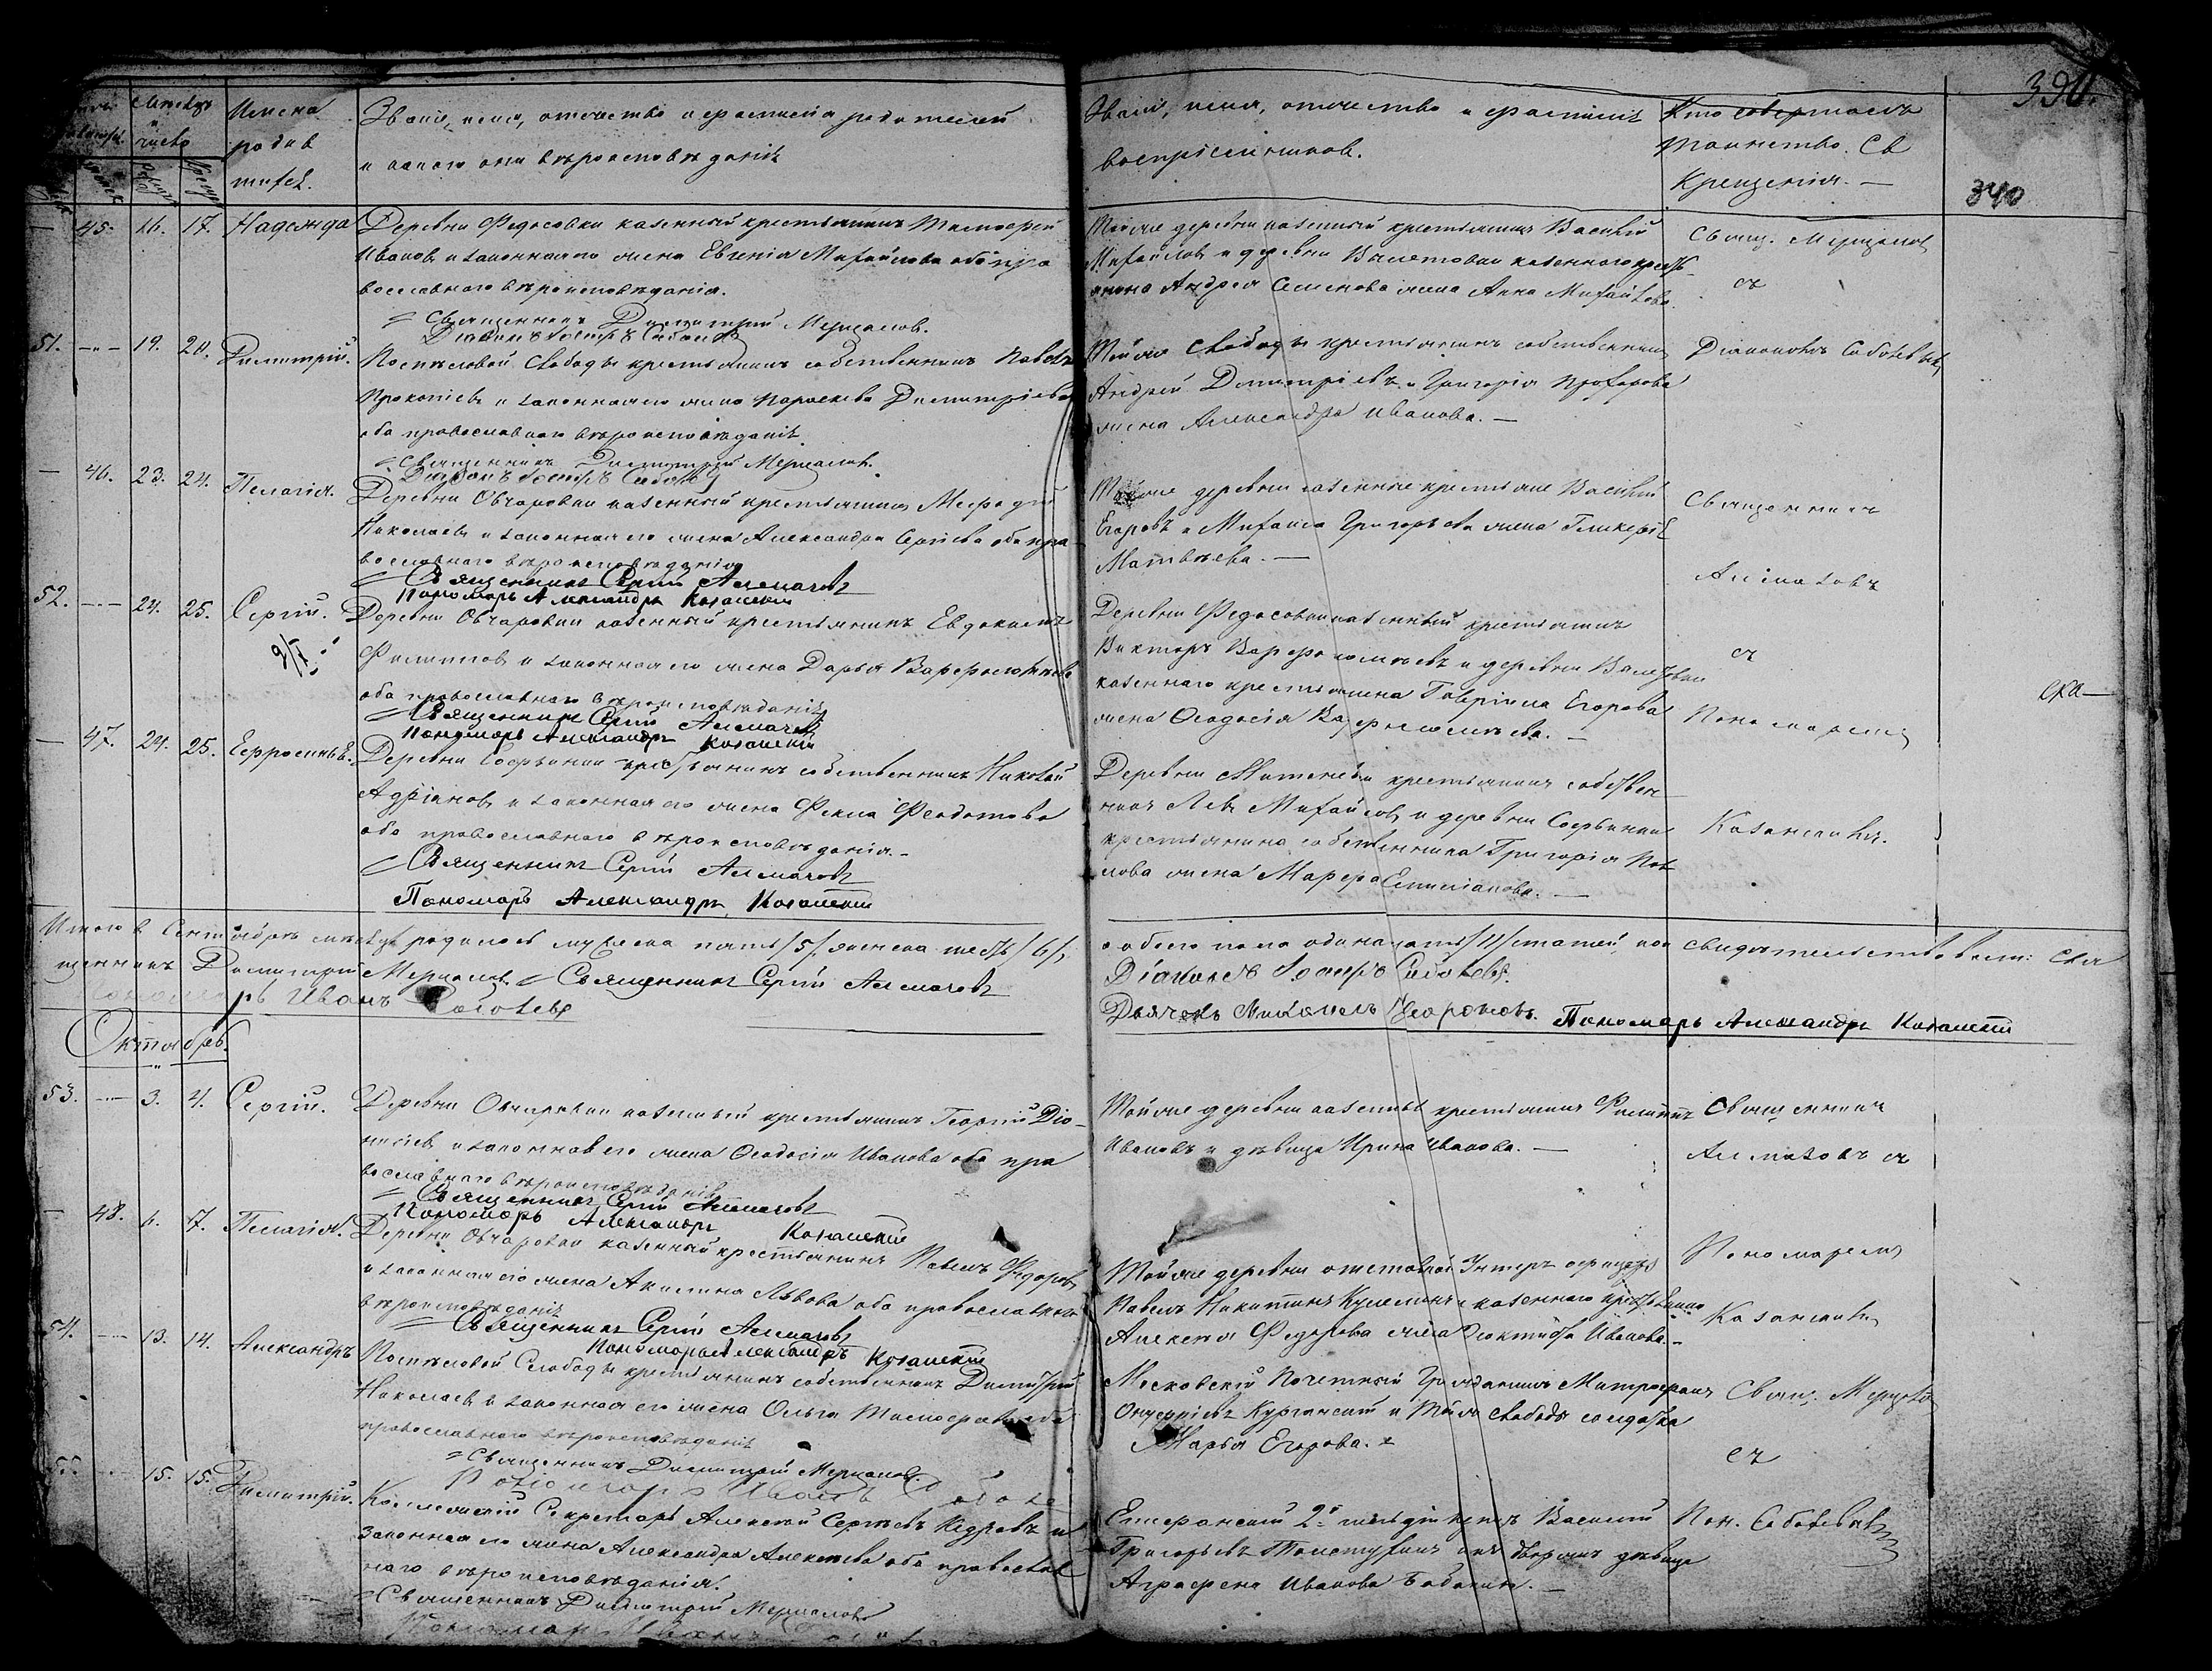 390.
340
Мѣсяцъ и число
Имена родив
шихся.
Званіе, имя, отчество и фамилія родителей
и какого они вѣроисповѣданія
Званіе, имя, отчество и фамилія
воспріемниковъ.
Кто совершалъ
таинство Св
Крещенія. —
— 45. 16. 17. Надежда
Деревни Федосовки казенный крестьянинъ Тимоѳей
Ивановъ и законная его жена Евгенія Михайлова оба пра
вославнаго вѣроисповѣданія.
Священникъ Димитрій Мерцаловъ.
Діаконъ Іосифъ Соболевъ
Той же деревни казенный крестьянинъ Василій
Михайловъ и деревни казеннаго кресть
янина Андрея Семенова жена Анна Михайлова
Свящ. Мерцаловъ
съ
51. — 19. 20. Димитрій.
Поспѣловой Слободы крестьянинъ собственникъ Павелъ
Прокопіевъ и законная его жена Параскева Димитріева
оба православнаго вѣроисповѣданія
Священникъ Димитрій Мерцаловъ.
Діаконъ Іосифъ Соболевъ
Той же Слободы крестьянинъ собственникъ
Андрей Димитріевъ и Григорія Прохорова
жена Александра Иванова. —
Діакономъ Соболевымъ
— 46. 23. 24. Пелагія.
Деревни Овчаровки казенный крестьянинъ Меѳодій
Николаевъ и законная его жена Александра Сергіева оба пра
вославнаго вѣроисповѣданія
Священникъ Сергій Алмазовъ
Пономарь Александръ Казанскій
Той же деревни казенные крестьяне Василій
Егоровъ и Михаила Григорьева жена Гликерія
Матвѣева. —
Священникъ
Алмазовъ
52. — 24. 25. Сергій.
Деревни Овчаровки казенный крестьянинъ Евдокимъ
Филипповъ и законная его жена Дарья Варфоломѣева
оба православнаго вѣроисповѣданія
Священникъ Сергій Алмазовъ
Пономарь Александръ Казанскій
Деревни Федосовки казенный крестьянинъ
Викторъ Варфоломѣевъ и деревни
казеннаго крестьянина Гавріила Егорова
жена Ѳеодосія Варфоломѣева. —
съ
Пономаремъ
— 47. 24. 25. Ефросинія.
Деревни Софьинки крестьянинъ собственникъ Николай
Адріановъ и законная его жена Фекла Феодотова
оба православнаго вѣроисповѣданія. —
Священникъ Сергій Алмазовъ
Пономарь Александръ Казанскій
Деревни крестьянинъ собствен
никъ Левъ Михайловъ и деревни Софьинки
крестьянина собственника Григорія
жена Марфа Емиліанова. —
Казанскимъ.
Итого в Сентябрѣ мѣсяцѣ родилось мужеска пять /5/, женска шесть /6/,
обоего пола одинадцать /11/ статей, кои свидѣтельствовали: Свя
щенникъ Димитрій Мерцаловъ Священникъ Сергій Алмазовъ
Діаконъ Іосифъ Соболевъ.
Пономарь Иванъ Соболевъ
Дьячекъ Пономарь Александръ Казанскій
Октябрь.
53. — 3. 4. Сергій.
Деревни Овчаровки казенный крестьянинъ Георгій Діо-
нисіевъ и законная его жена Ѳеодосія Иванова оба пра
вославнаго вѣроисповѣданія
Священникъ Сергій Алмазовъ
Пономарь Александръ Казанскій
Той же деревни казенный крестьянинъ Филиппъ
Ивановъ и дѣвица Ирина Иванова. —
Священникъ
Алмазовъ съ
— 48. 6. 7. Пелагія.
Деревни Овчаровки казенный крестьянинъ Павелъ Федоровъ
и законная его жена Акилина Львова оба православнаго
вѣроисповѣданія
Священникъ Сергій Алмазовъ
Пономарь Александръ Казанскій
Той же деревни отставной Унтеръ офицеръ
Павелъ Никитинъ и казеннаго крестьянина
Алексѣя Федорова жена Иванова. —
Пономаремъ
Казанскимъ
54. — 13. 14. Александръ
Поспѣловой Слободы крестьянинъ собственникъ Димитрій
Николаевъ и законная его жена Ольга Тимоѳеева оба
православнаго вѣроисповѣданія
Священникъ Димитрій Мерцаловъ.
Пономарь Иванъ Соболевъ
Московскій Почетный Гражданинъ Митрофанъ
и той же слободы солдатка
Марья Егорова.
Свящ. Мерцаловъ
съ
55. — 15. 15. Димитрій.
Коллежскій Секретарь Алексѣй Сергѣевъ Кедровъ и
законная его жена Александра Алексѣева оба православ
наго вѣроисповѣданія.
Священникъ Димитрій Мерцаловъ
Пономарь Иванъ
2й гильдіи купецъ Василій
Григорьевъ дѣвица
Аграфена Иванова —
Пон. Соболевымъ